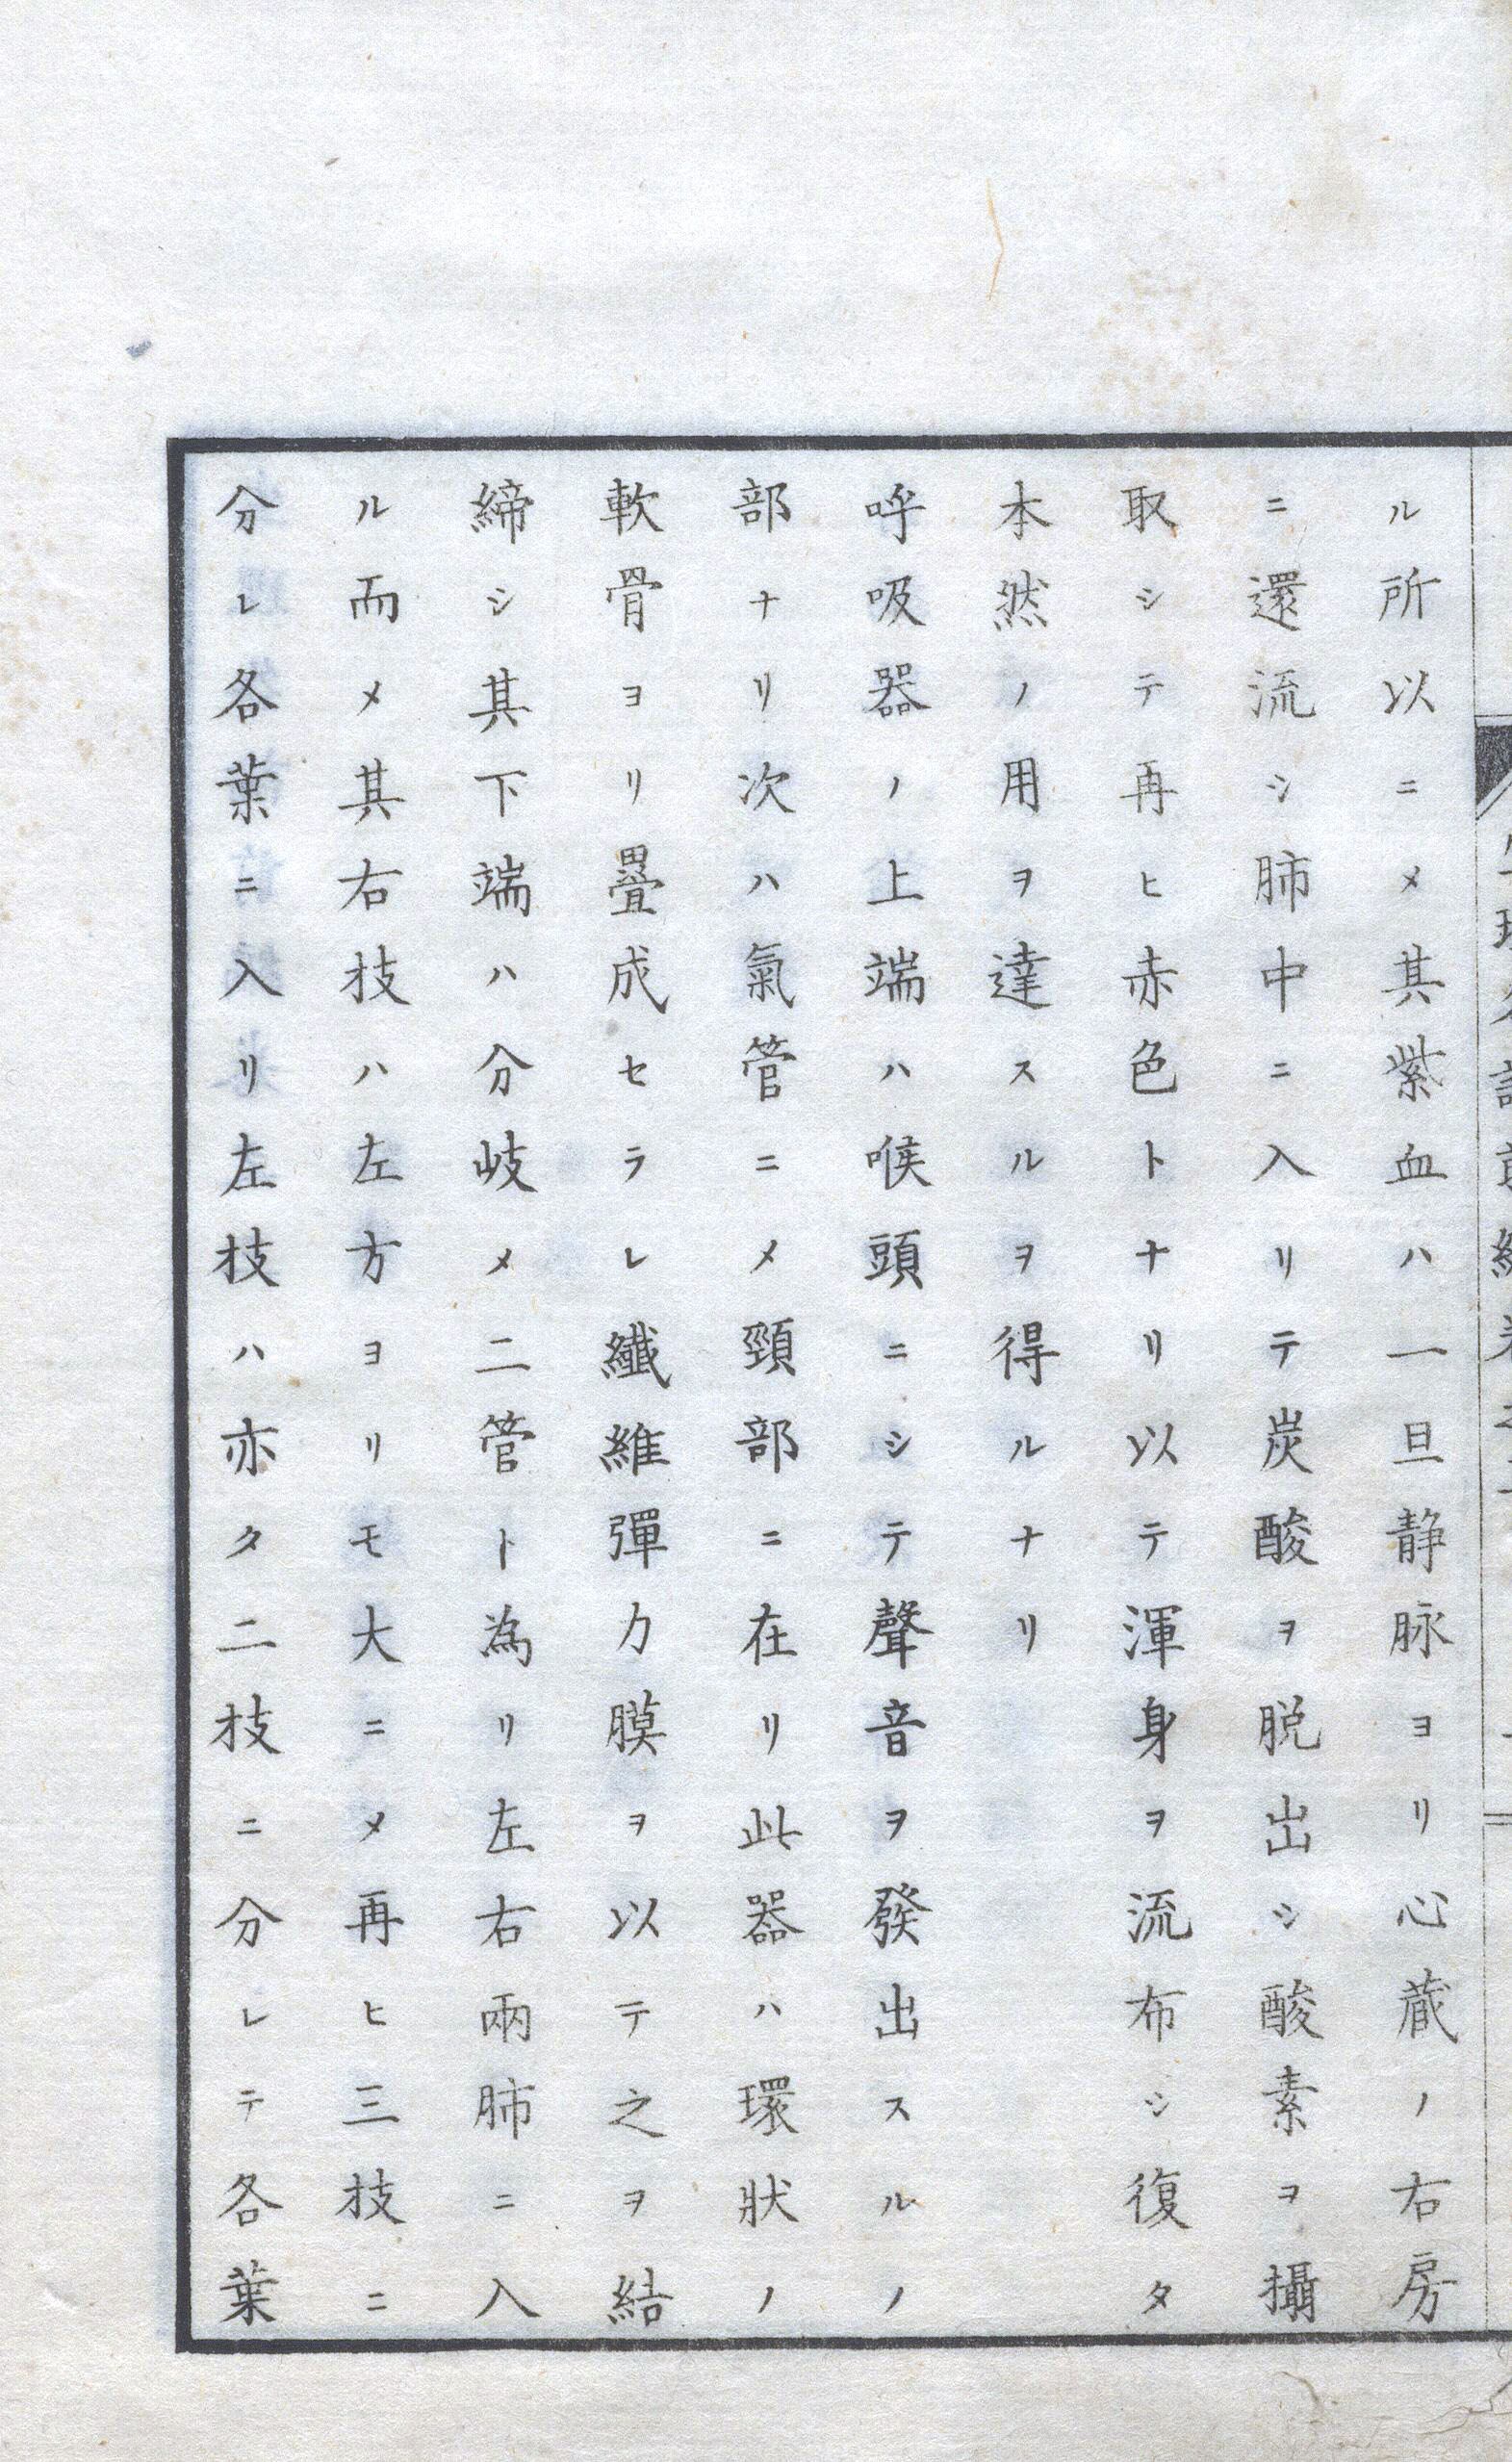 ル所以ニメ其紫血ハ一旦静脉ヨリ心蔵ノ右房
ニ還流シ肺中ニ入リテ炭酸ヲ脱出シ酸素ヲ攝
取シテ再ヒ赤色トナリ以テ渾身ヲ流布シ復タ
本然ノ用ヲ達スルヲ得ルナリ
呼吸器ノ上端ハ喉頭ニシテ聲音ヲ發出スルノ
部ナリ次ハ氣管ニメ頸部ニ在リ此器ハ環狀ノ
軟骨ヨリ疊成セラレ纖維彈力膜ヲ以テ之ヲ結
締シ其下端ハ分岐メ二管ト為リ左右兩肺ニ入
ル而メ其右枝ハ左方ヨリモ大ニメ再ヒ三枝ニ
分レ各葉ニ入リ左枝ハ亦タ二枝ニ分レテ各葉